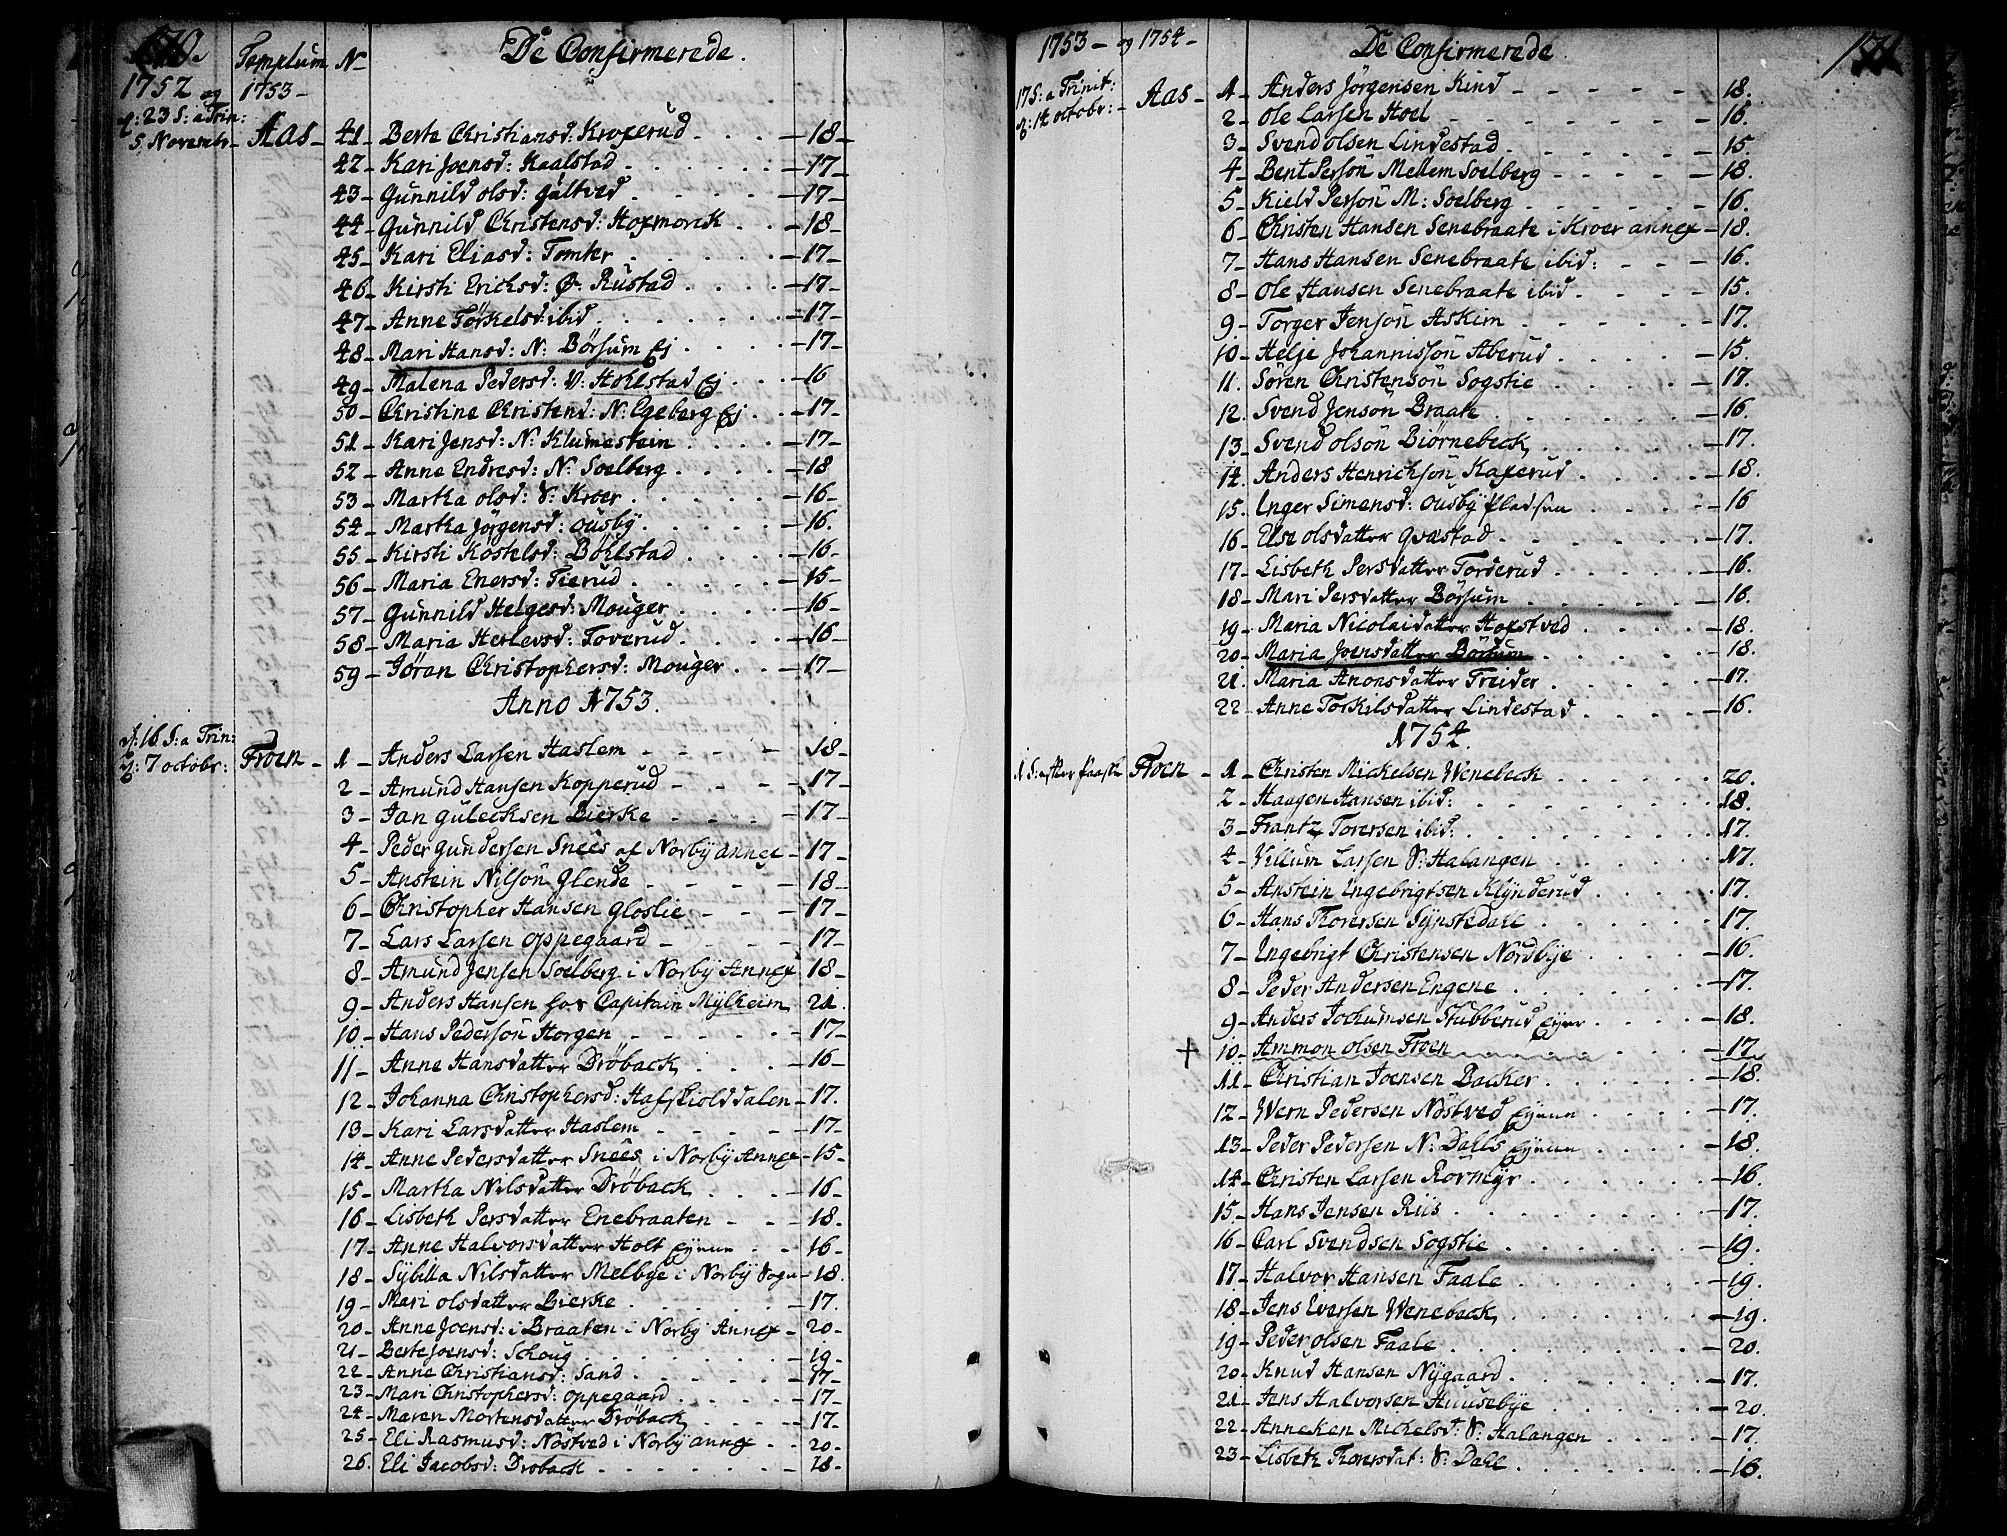 170.
Templum N- De Confirmerede.
1752 og 1753-
d: 23 S: a Trin:
5 Novembr- Aas- 41- Berte Christiansd: Kroxerud - 18-
42- Kari Joensd: Kaalstad - 17-
43- Gunnild olsd: galtved - 17-
44- Gunnild Christensd: Hoxmorck - 18-
45- Kari Eliasd: Tomter - 17-
46- Kirsti Ericksd: Ø. Rustad - 17-
47- Anne Törkelsd: ibid - 17-
48- Mari Hansd: N: Börsum Ej - 17-
49- Malena Pedersd: V: Hohlstad Ej - 16
50- Christine Christend: N: Egeberg Ej - 17-
51- Kari Jensd: N: Klumestein - 17-
52- Anne Endresd: N: Soelberg - 18
53- Martha olsd: V: Kroer - 16-
54- Martha Jörgensd: ousbÿ - 16.
55- Kirsti Köstelsd: Böhlstad - 16-
56- Maria Enersd: Tierud - 15-
57- Gunnild Helgesd: Mouger - 16-
58- Maria Herlevsd: Toverud - 16-
59- Jöran Christophersd: Mouger - 17-
Anno 1753.
d: 16 S: a Trin:
d: 7 octobr: Froen - 1- Anders Larsen Haslem - 18-
2- Amund Hansen Kopperud - 17-
3- Jan gulecksen Bierke - 17-
4- Peder gundersen Snees af Norbÿ annex - 17-
5- Anstein Nilsön Glende - 18-
6- Christopher Hansen Gloslie - 17-
7- Lars Larsen oppegaard - 17-
8- Amund Jensen Soelberg i Norbÿ Annex 18-
9- Anders Hansen hos Capitain Mÿlheim 21.
10- Hans Pedersön Horgen - 17-
11- Anne Hansdatter Dröback - 16-
12- Johanna Christophersd: Hafskiolddalen - 17.
13- Kari Larsdatter Haslem - 17-
14- Anne Pedersdatter Snees i Norbÿ Annex - 15-
15- Martha Nilsdatter Dröback - 16-
16- Lisbeth Persdatter Enebraaten - 18-
17- Anne Halvorsdatter Holt Ejeren - 16-
18- Sÿbilla Nilsdatter Melbye i Norbÿ Sogn - 18.
19- Mari olsdatter Bierke - 17.
20- Anne Joensd: i Braaten i Norbÿ Annex - 20-
21- Berte Joensd: Schoug - 19-
22- Anne Christiansd: Sand - 17-
23- Mari Christophersd: oppegaard - 17-
24- Maren Mortensdatter Dröback - 17.
25- Eli Rasmusd: Nöstved i Norbÿ annex - 20-
26. Eli Jacobsd: Droback - 18-
1753- og 1754- De Confirmerede 171
17 S: a Trinit:
d: 14 octobr: - Aas- 1- Anders Jörgensen Kind - 18.
2- Ole Larsen Hoel - 16.
3- Svend olsen Lindestad - 15
4- Bent Persön Mellem Soelberg - 18.
5- Kield Persön M: Soelberg - 16.
6- Christen Hansen Senebraate i Kroer annex - 18.
7- Hans Hansen Senebraate ibid: - 16.
8- Ole Hansen Senebraate ibid - 15.
9- Torger Jensön Askim - 17.
10- Helje Johannissön Aberud - 15.
11. Sören Christensön Sogstie - 17.
12. Svend Jensön Braate - 16.
13- Svend olsön Biörnebeck - 17.
14. Anders Henrichsön Kaxerud - 18.
15. Inger Simensd: ousbÿ Pladsen - 16
16- Else olsdatter Qvestad - 17.
17- Lisbeth Persdatter Torderud - 16.
18- Mari Persdatter Börsum - 16.
19- Maria Nicolaidatter Hoxstved - 18.
20- Maria Joensdatter Börsum - 18.
21. Maria Anonsdatter Treider - 17.
22- Anne Torkilsdatter Lindestad - 16.
1754.
1 S: efter Paaske Froen - 1- Christen Mickelsen Wenebeck 20.
2- Haagen Hansen ibid: 18.
3- Frantz Torersen ibid: 17.
4- Villum Larsen S: Halangen 17.
5- Anstein Ingebrigtsen Klÿnderud 17.
6- Hans Thorersen Sÿnstedahl 17.
7- Ingebrigt Christensen Nordbÿe - 16.
8- Peder Andersen Engene - 17.
9- Anders Jochumsen Stubberud Ejeren - 18.
+ 10- Ammon olsen Froen - 17.
11- Christian Joensen Backer - 18.
12- Wern Pedersen Nöstved Ejeren - 17.
13- Peder Pedersen N: Dahls Ejeren - 18.
14- Christen Larsen Rörmÿr - 16.
15- Hans Jensen Riis - 17.
16- Carl Svendsen Sogstie - 19.
17- Halvor Hansen Faale - 19.
18- Jens Iversen Wenebeck - 19.
19- Peder olsen Faale - 20.
20- Knud Hansen Nÿgaard - 17.
21- Jens Halvorsen Huusebÿe - 20.
22- Anneken Mickelsd: S: Halangen - 17.
23- Lisbeth Thorersdat: S: Dahl - 16.